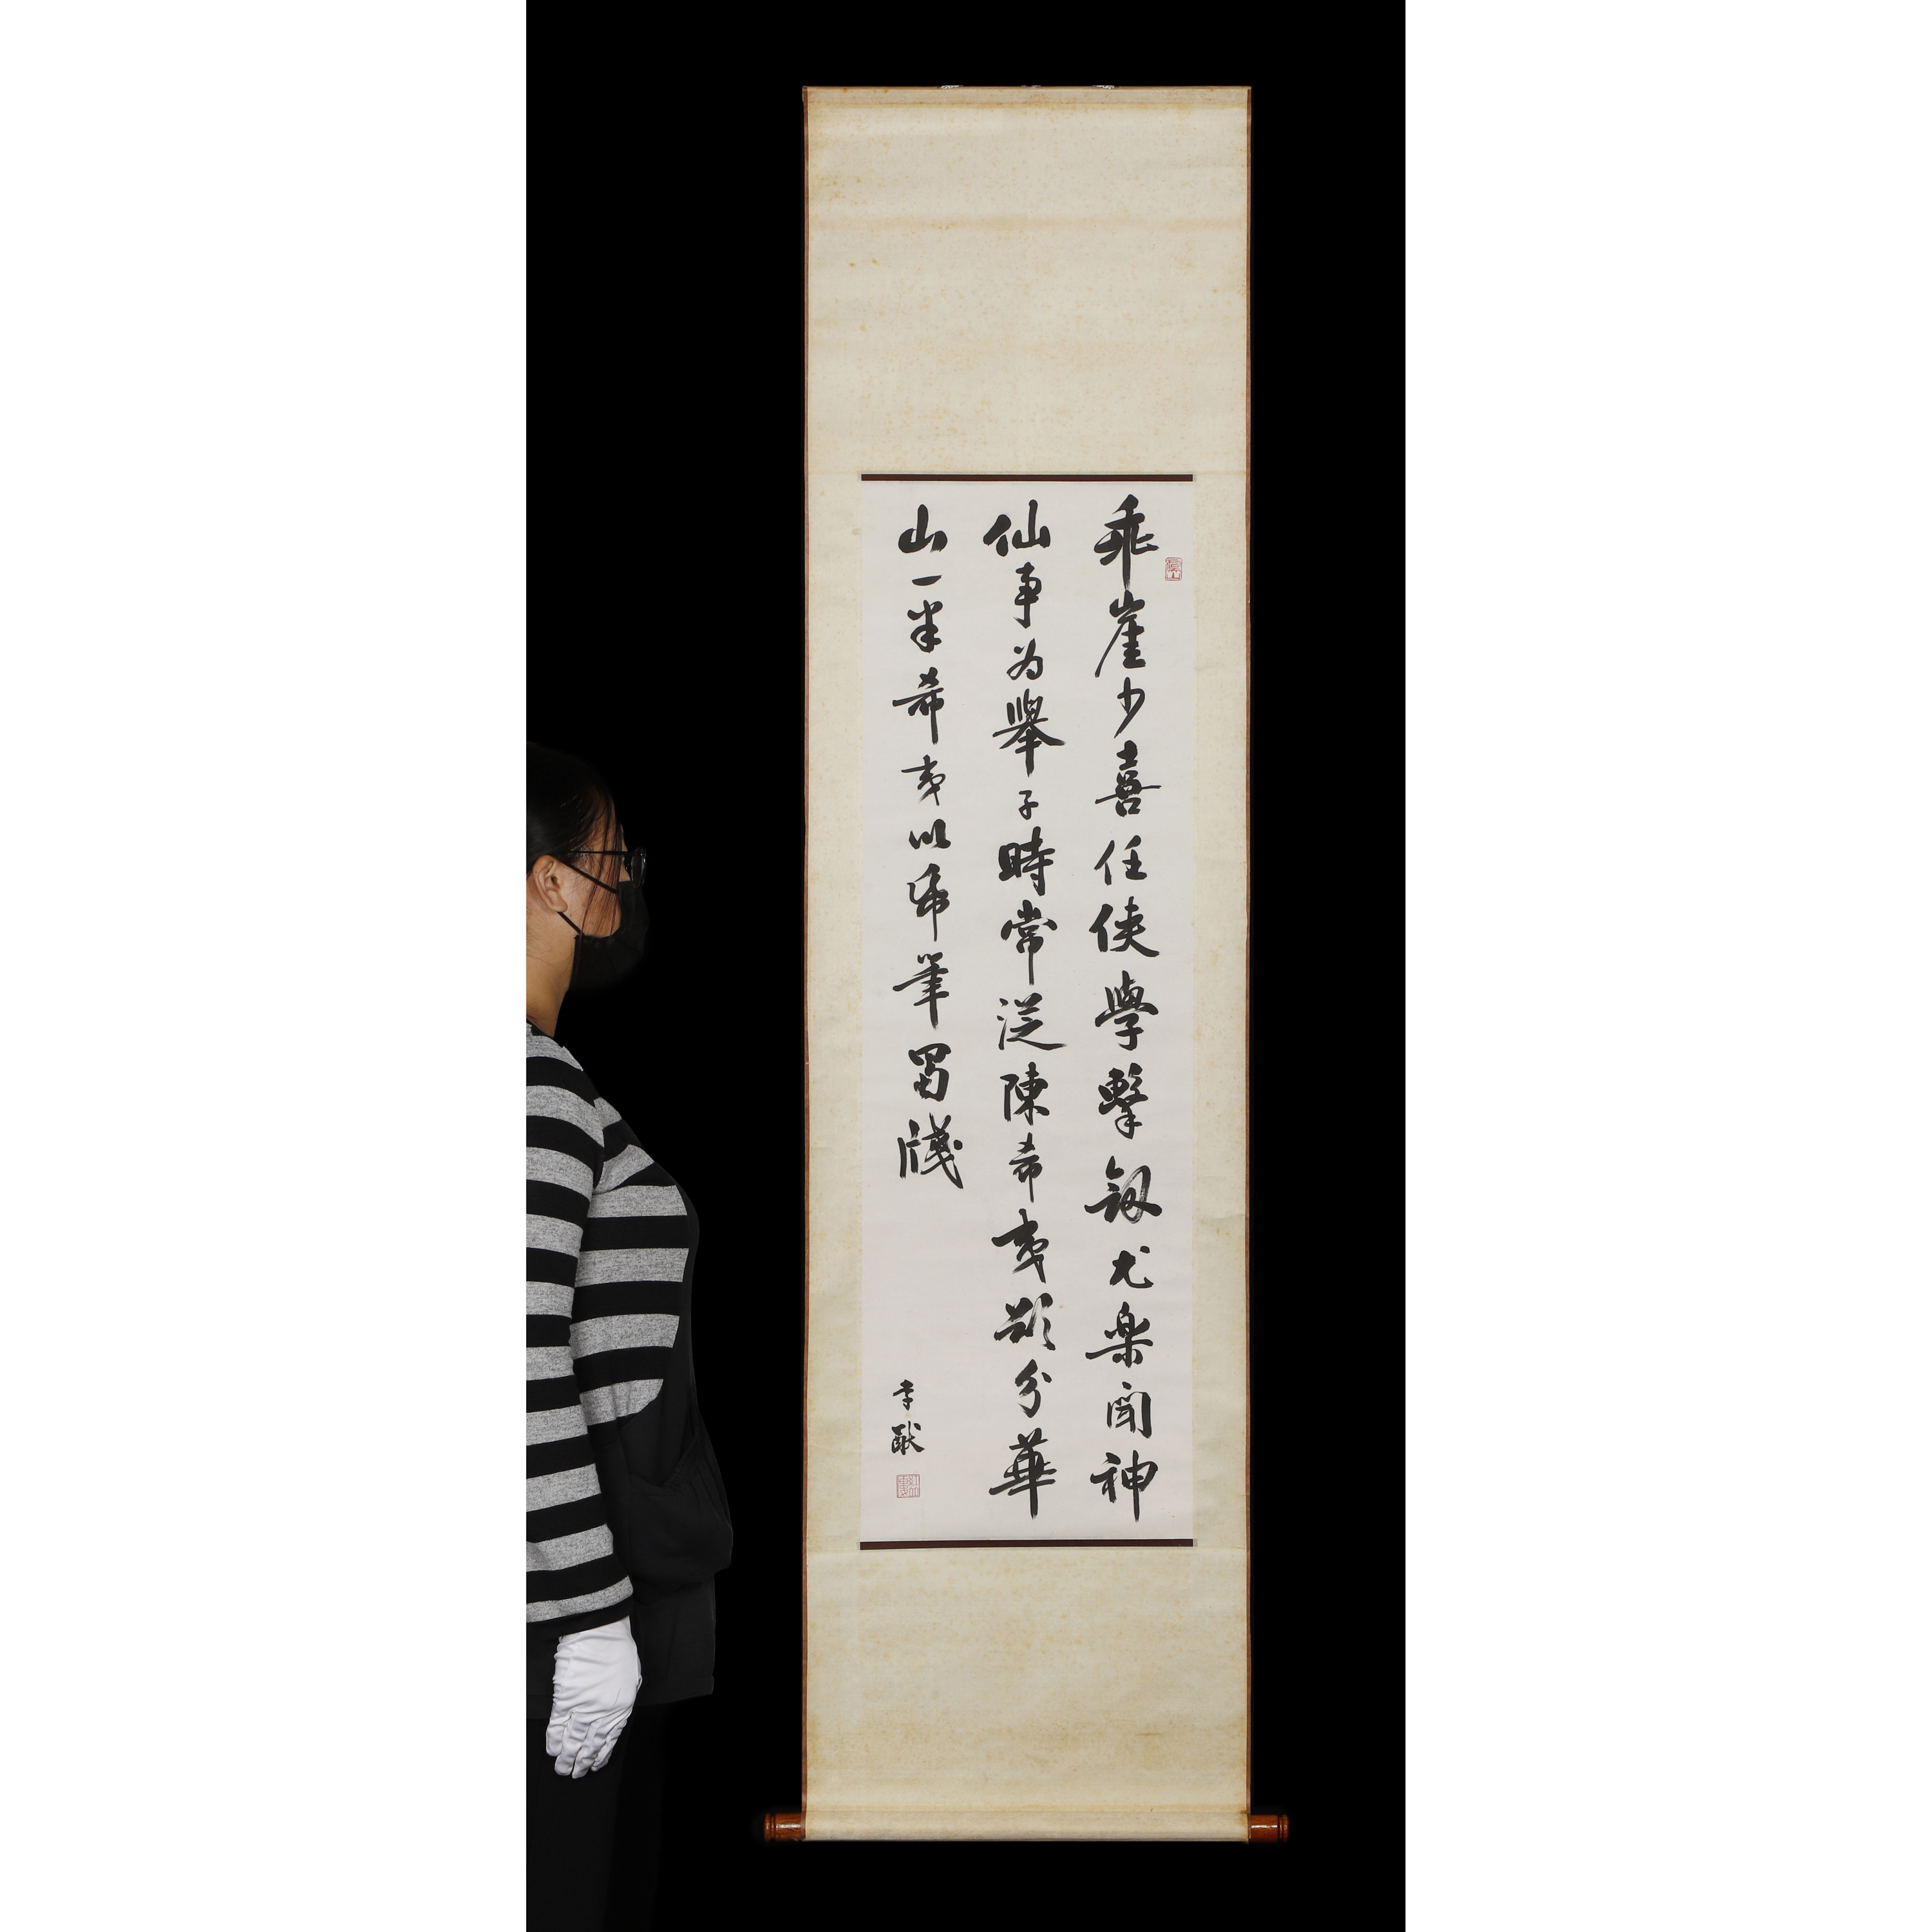 乖崖少喜任俠學擊劔尤樂聞神
仙事为舉子時常從陳希夷欲分華
山一半希夷以紙筆蜀牋
李猷